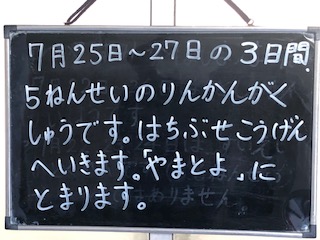 7月25日～27日の3日間、
5ねんせいのりんかんがく
しゅうです。はちぶせこうげん
へいきます。「やまとよ」に
とまります。